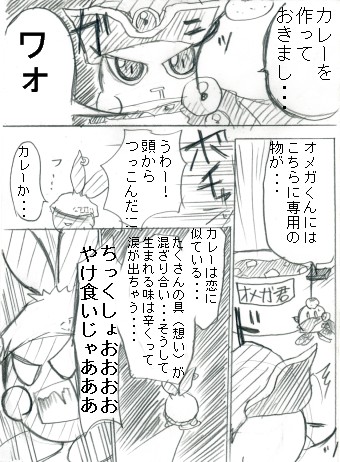 カレーを
作って
おきまし・・
ガッ
ワォ
オメガくんには
こちらに専用の
物が・・・
オメガ君
ボチャ
うわー！
頭から
つっこんだー
カレーか・・・
カレーは恋に
似ている・・・
たくさんの具（想い）が
混ざり合い・・そうして
生まれる味は辛くって
涙が出ちゃう・・・
ちっくしょおおおお
やけ食いじゃあああ